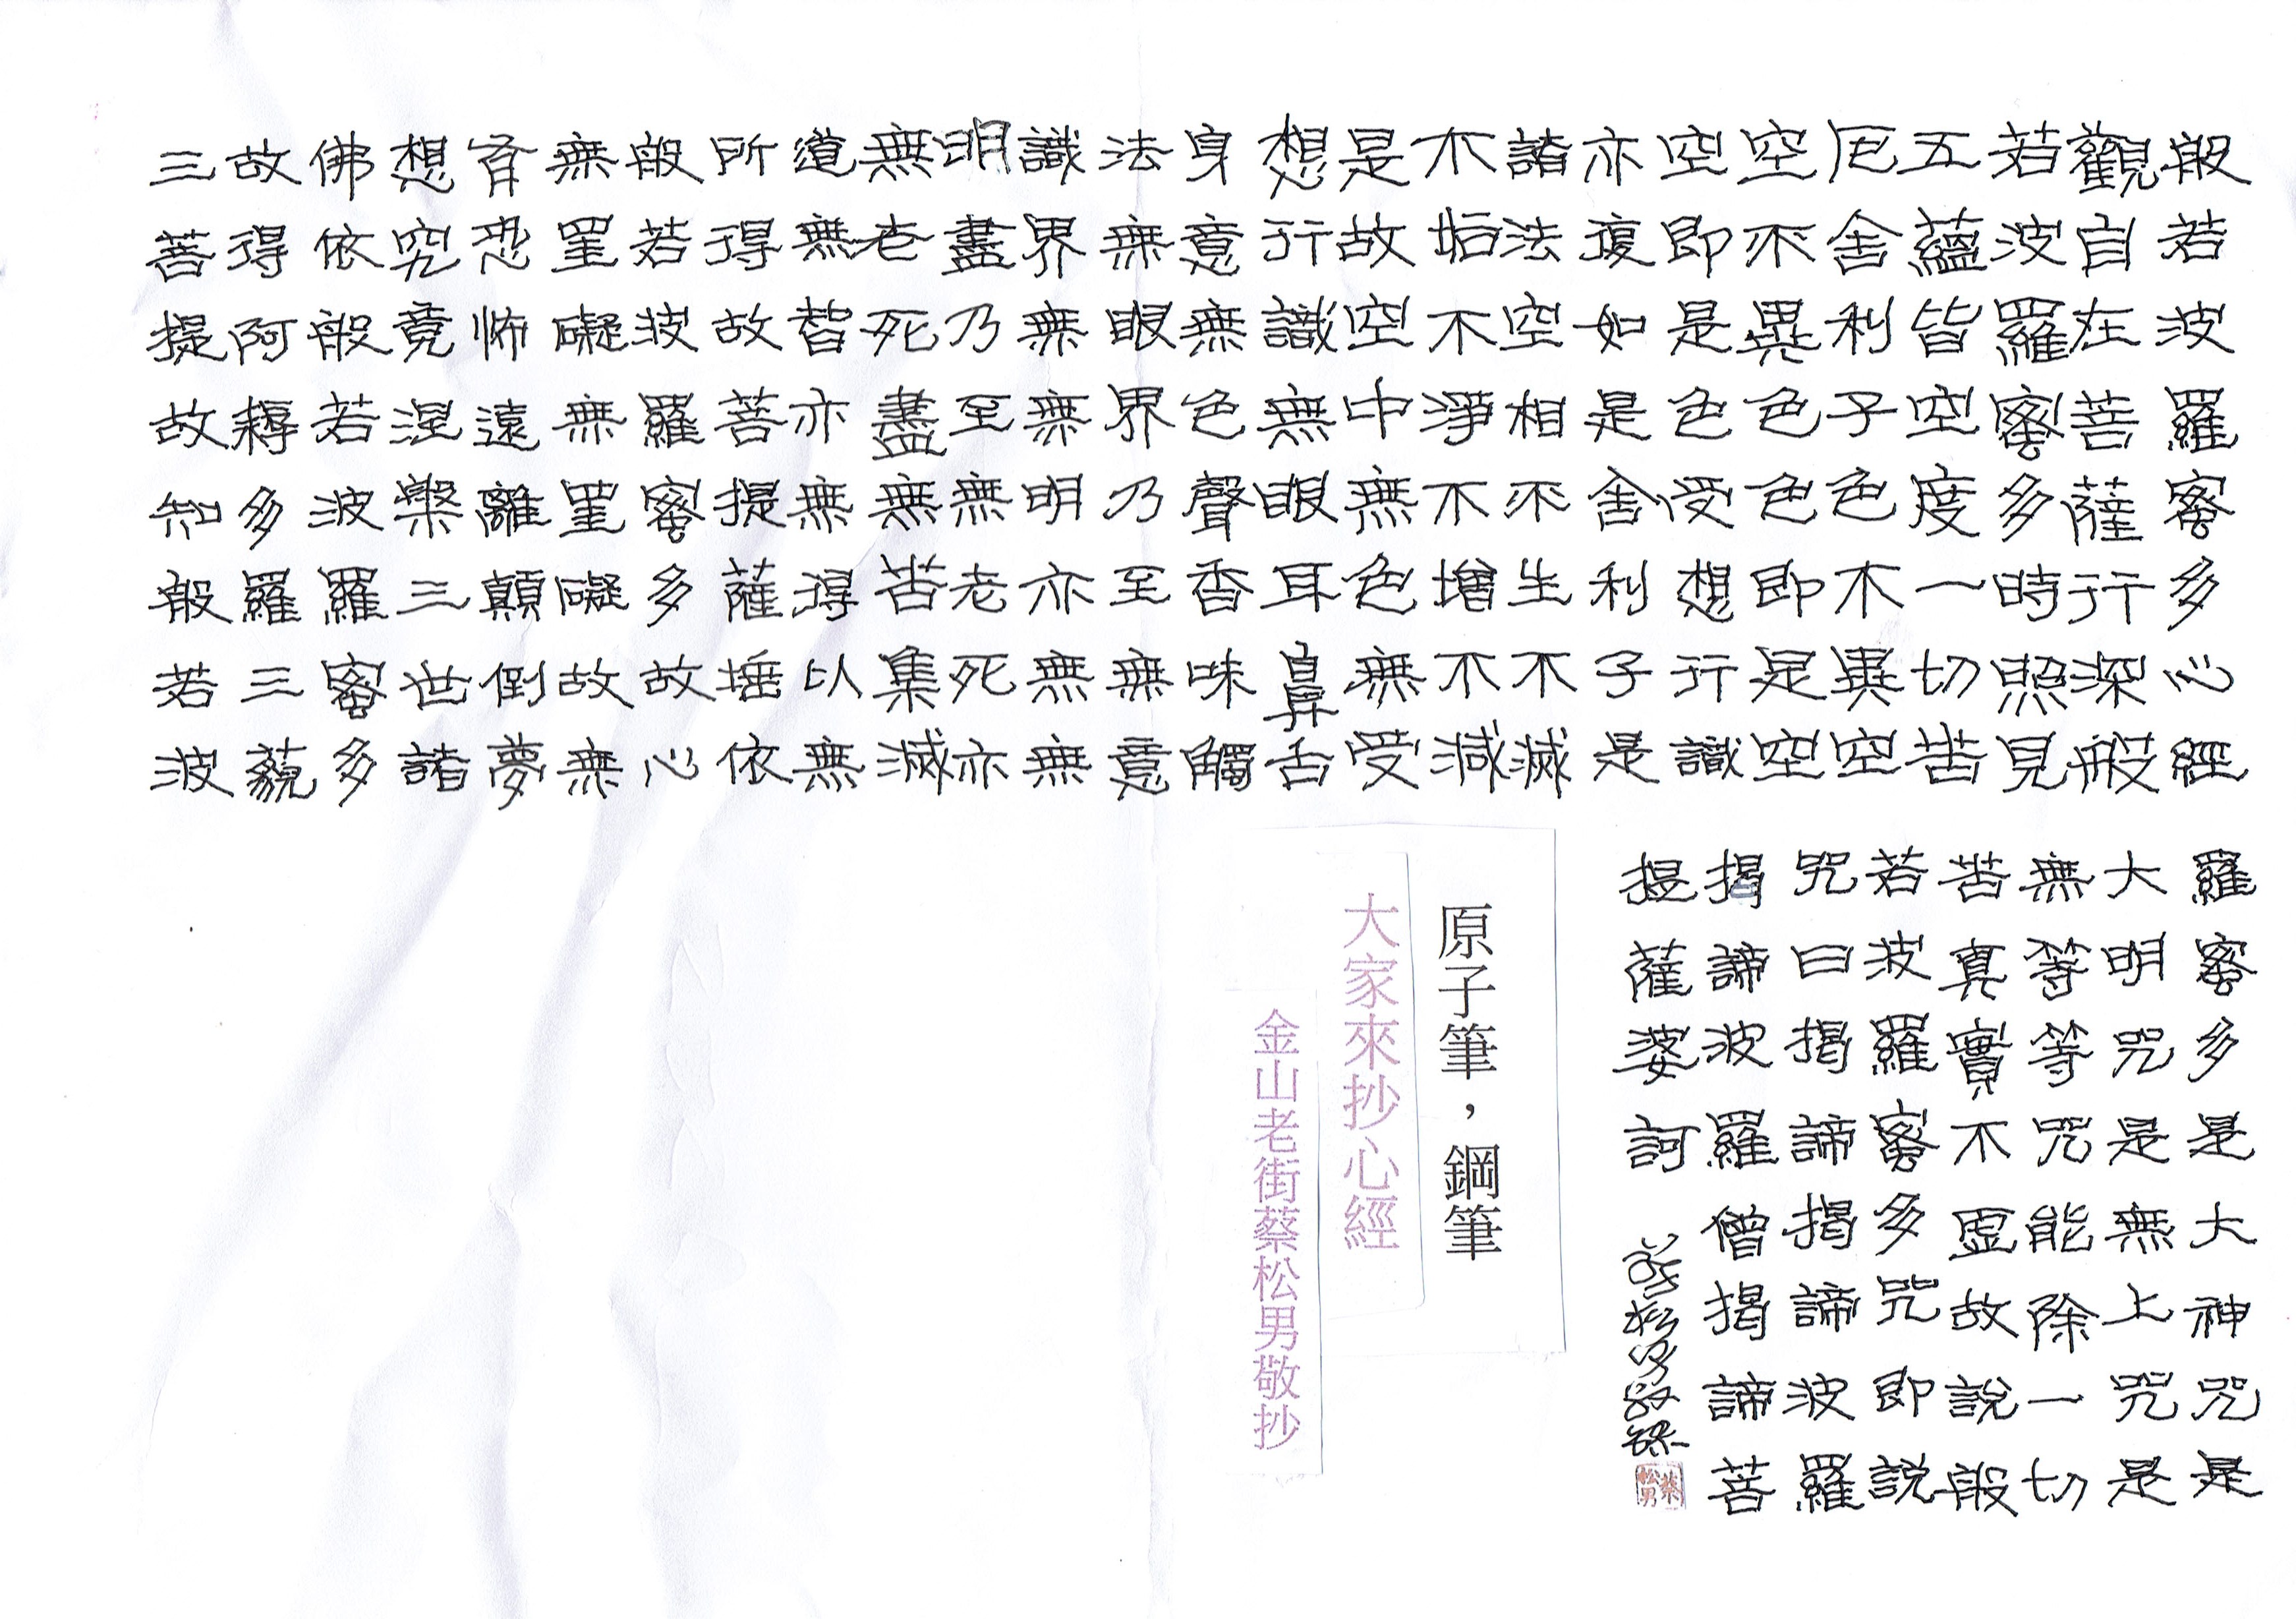 般若波羅蜜多心經
觀自在菩薩行深般
若波羅蜜多時照見
五蘊皆空度一切苦
厄舍利子色不異空
空不異色色即是空
空即是色受想行識
亦復如是舍利子是
諸法空相不生不滅
不垢不淨不增不減
是故空中無色無受
想行識無眼耳鼻舌
身意無色聲香味觸
法無眼界乃至無意
識界無無明亦無無
明盡乃至無老死亦
無老死盡無苦集滅
道無智亦無得以無
所得故菩提薩埵依
般若波羅蜜多故心
無罣礙無罣礙故無
有恐怖遠離顛倒夢
想究竟涅槃三世諸
佛依般若波羅蜜多
故得阿耨多羅三藐
三菩提故知般若波
羅蜜多是大神咒是
大明咒是無上咒是
無等等咒能除一切
苦真實不虛故說般
若波羅蜜多咒即說
咒曰揭諦揭諦波羅
揭諦波羅僧揭諦菩
提薩婆訶
蔡松男敬錄
蔡松男
原子筆，鋼筆
大家來抄心經
金山老街蔡松男敬抄